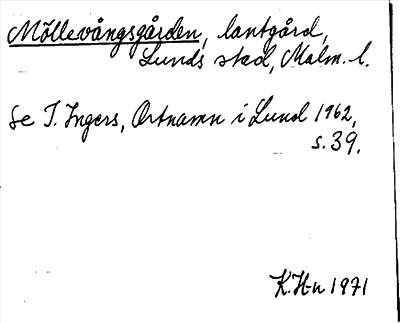 Möllevångsgården, lantgård,
Lunds stad, Malm. l.
Se I. Ingers, Ortnamn i Lund 1962,
s. 39.
K.H-n 1971